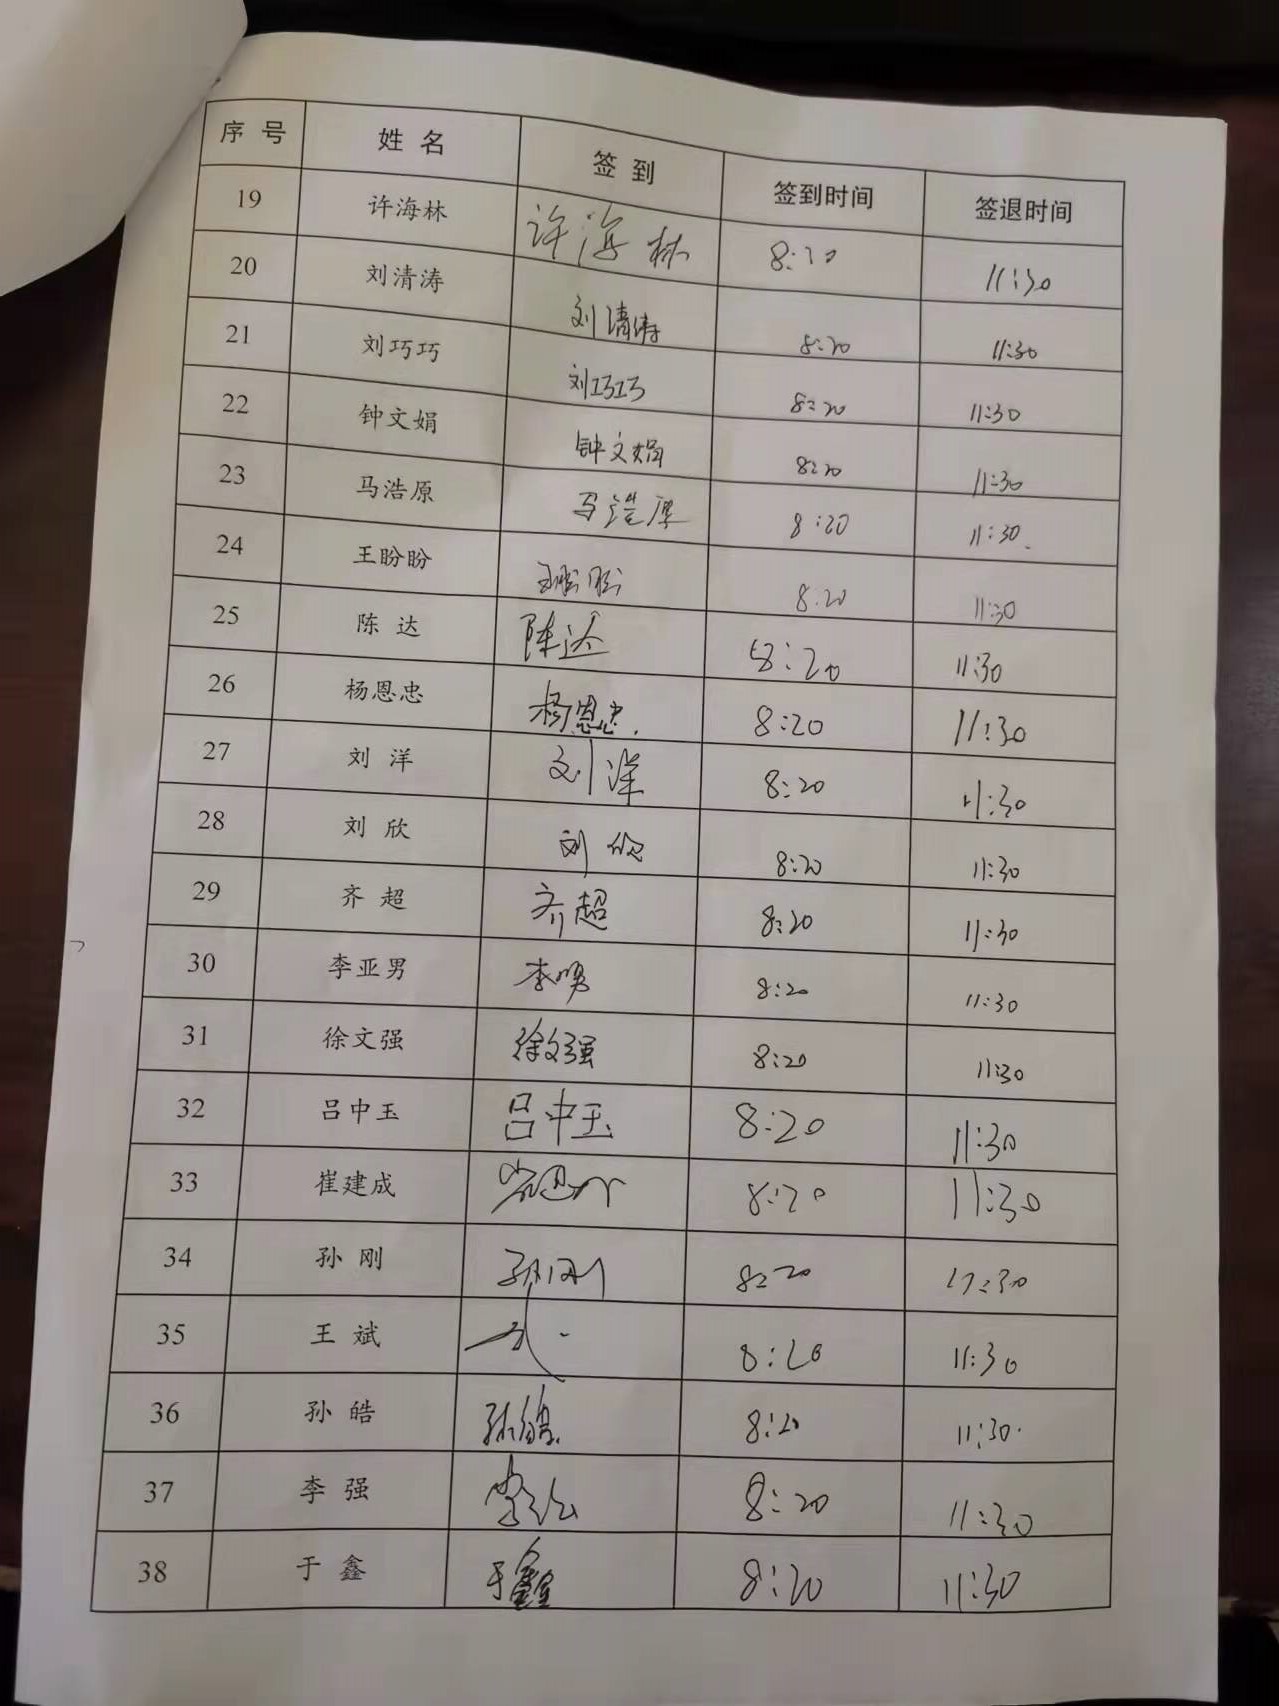 序号 姓名 签到 签到时间 签退时间
19 许海林 许海林 8:20 11:30
20 刘清涛 刘清涛 8:20 11:30
21 刘巧巧 刘巧巧 8:20 11:30
22 钟文娟 钟文娟 8:20 11:30
23 马浩原 马浩原 8:20 11:30
24 王盼盼 王盼盼 8:20 11:30
25 陈达 陈达 8:20 11:30
26 杨恩忠 杨恩忠 8:20 11:30
27 刘洋 刘洋 8:20 11:30
28 刘欣 刘欣 8:20 11:30
29 齐超 齐超 8:20 11:30
30 李亚男 8:20 11:30
31 徐文强 徐文强 8:20 11:30
32 吕中玉 吕中玉 8:20 11:30
33 崔建成 8:20 11:30
34 孙刚 孙刚 8:20
35 王斌 8:20 11:30
36 孙皓 孙皓 8:20 11:30
37 李强 8:20 11:30
38 于鑫 于鑫 8:20 11:30